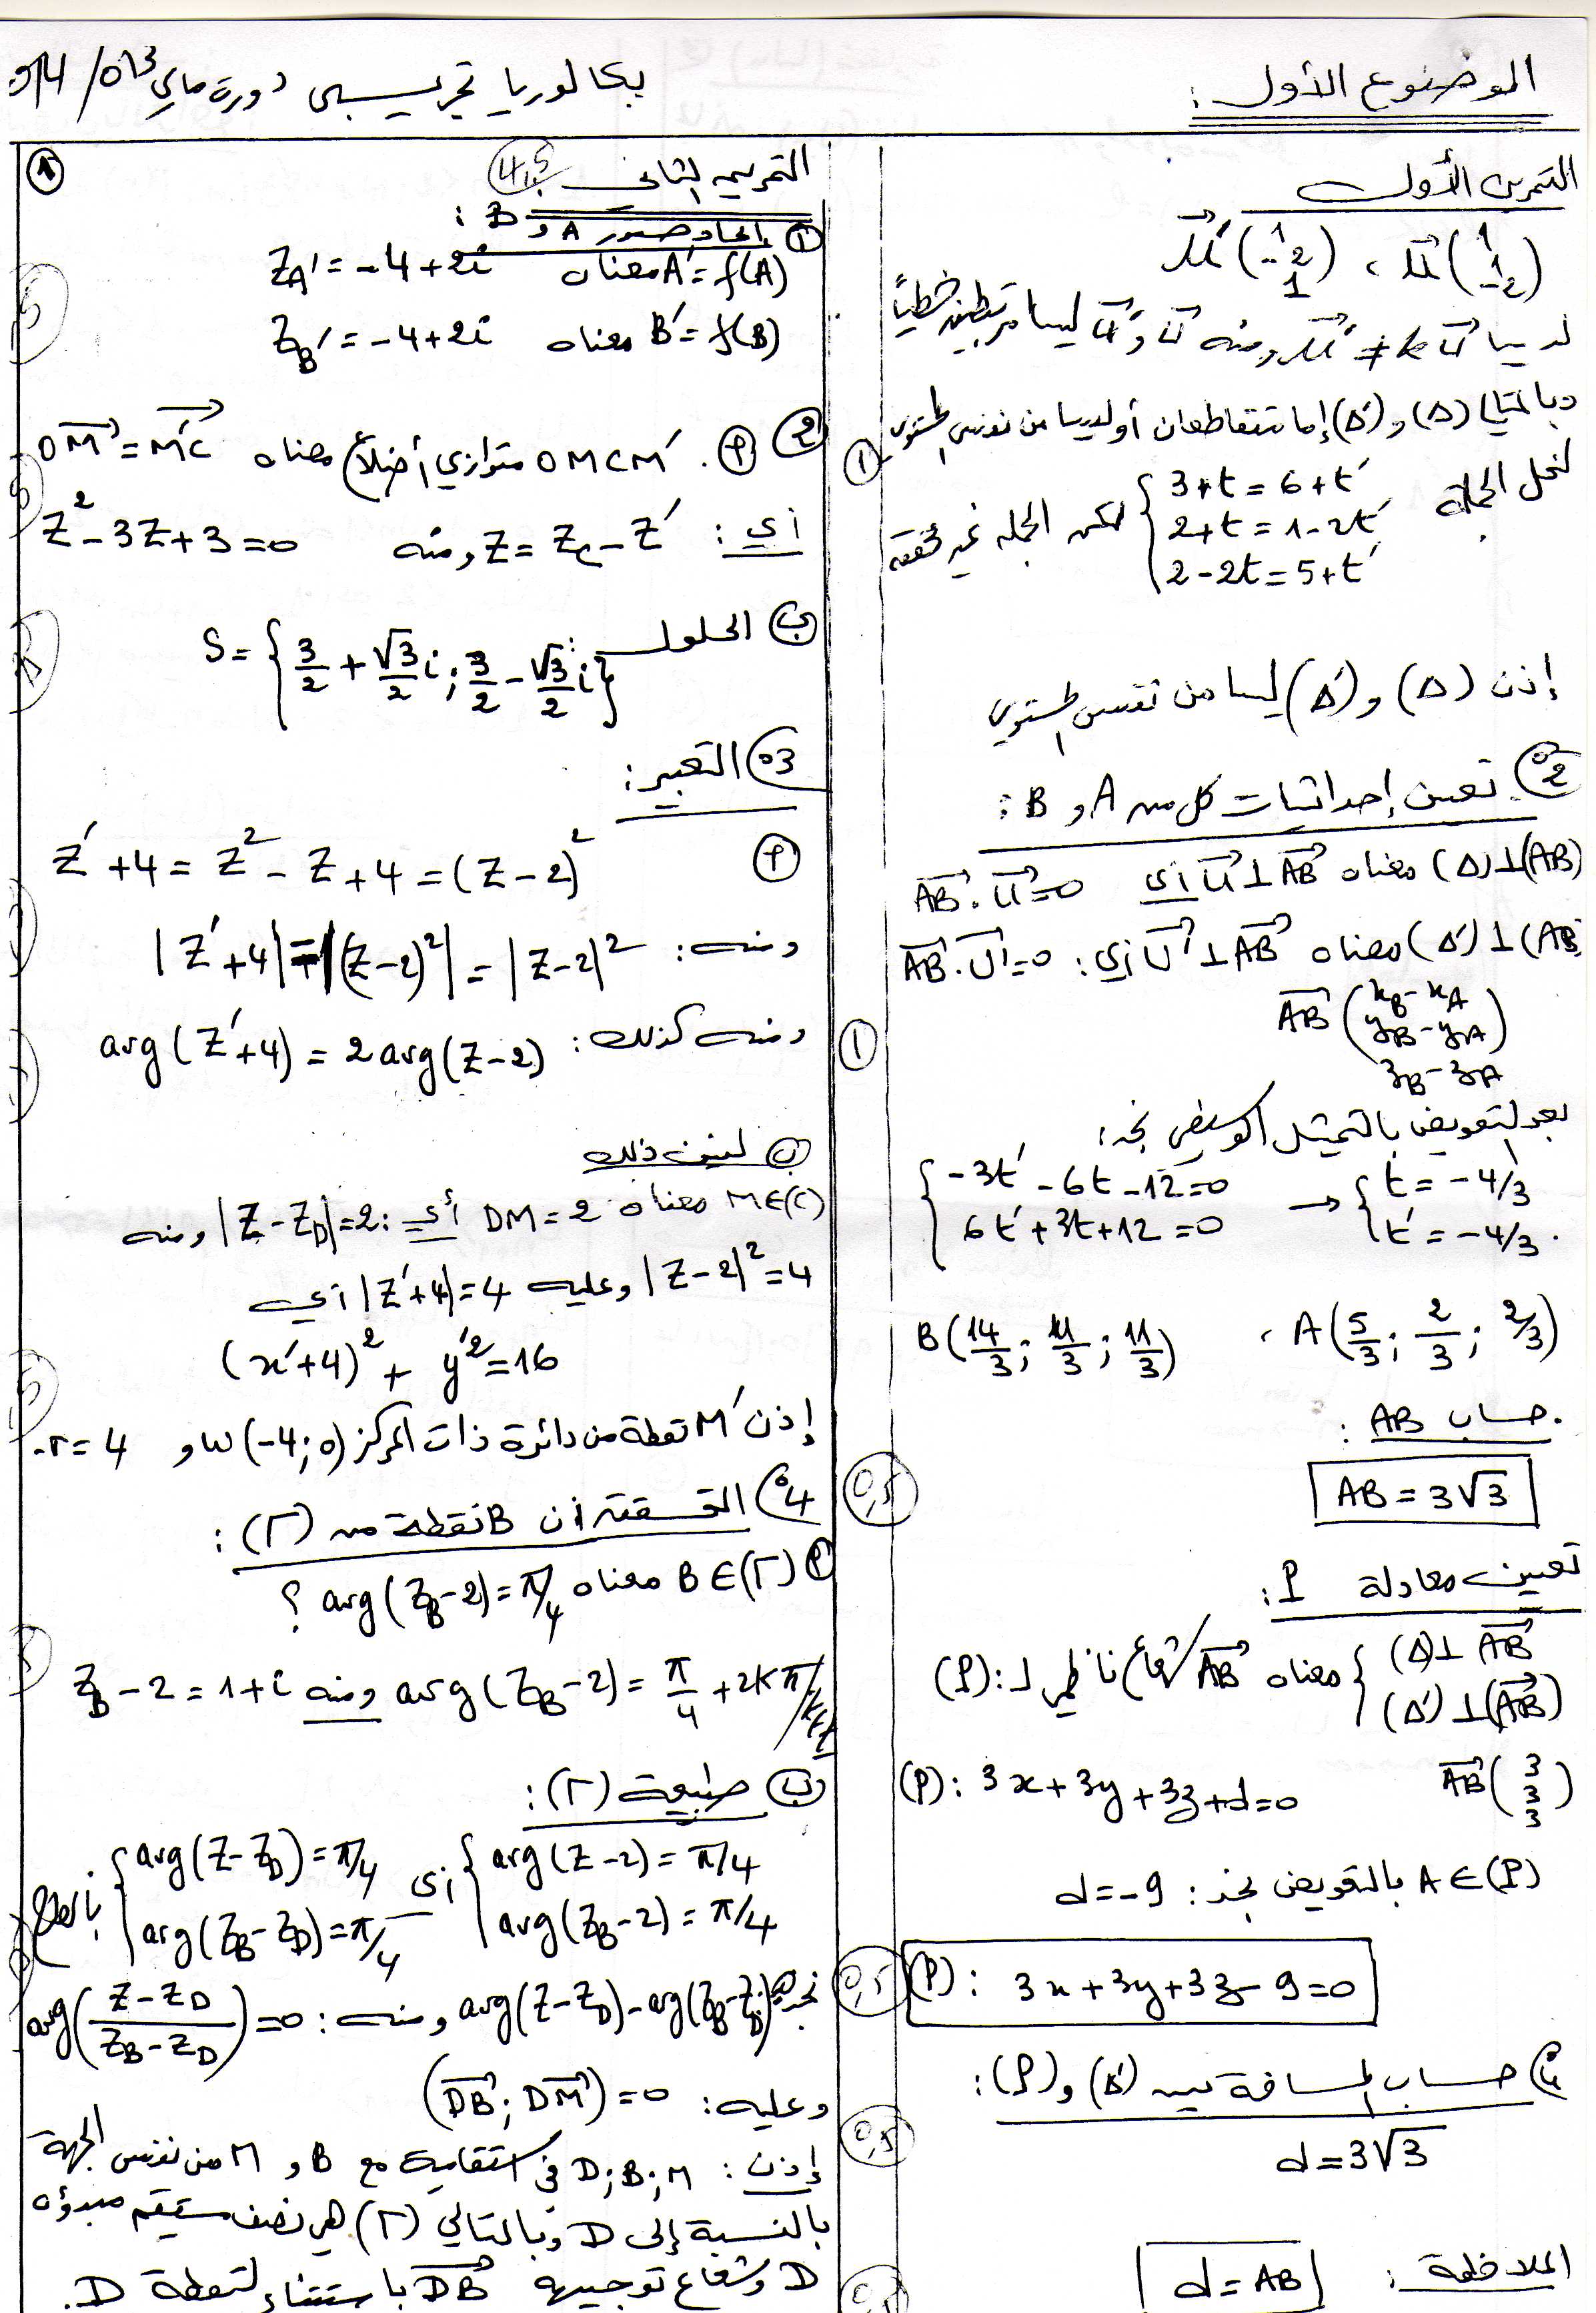 الموضوع الأول :
بكالوريا تجريبي دورة ماي
التمرين الأول
u⃗'(1 ; -2 ; 1) ، u⃗(1 ; 1 ; -2)
لدينا u⃗' ≠ k u⃗ ومنه u⃗ و u⃗' ليسا مرتبطين خطيا
وبالتالي (Δ) و (Δ') إما متقاطعان أو ليسا من نفس المستوي
①
لنحل الجملة
{ 3+t = 6+t'
2+t = 1-2t'
2-2t = 5+t'
لكن الجملة غير محققة
إذن (Δ) و (Δ') ليسا من نفس المستوي
2°) تعيين إحداثيات كل من A و B :
(AB)⊥(Δ) معناه AB⃗ ⊥ u⃗ أي AB⃗ . u⃗ = 0
(AB)⊥(Δ') معناه AB⃗ ⊥ u⃗' أي : AB⃗ . u⃗' = 0
AB⃗ (xB - xA ; yB - yA ; zB - zA)
①
بعد التعويض بالتمثيل الوسيطي نجد :
{ -3t' - 6t - 12 = 0 → { t = -4/3
6t' + 3t + 12 = 0 t' = -4/3 .
A(5/3 ; 2/3 ; 2/3) ، B(14/3 ; 11/3 ; 11/3)
. حساب AB :
0,5
AB = 3√3
تعيين معادلة P :
{ (Δ)⊥AB⃗
(Δ')⊥(AB⃗)
معناه AB⃗ شعاع ناظمي لـ : (P)
AB⃗ (3 ; 3 ; 3) (P): 3x+3y+3z+d=0
A∈(P) بالتعويض نجد : d=-9
0,5
(P): 3x+3y+3z-9=0
حساب المسافة بين (Δ') و (P) :
0,5
d=3√3
الملاحظة : d=AB
①
التمرين الثاني : 4,5
① إيجاد صور A و B :
A'=f(A) معناه zA' = -4+2i
B'=f(B) معناه zB' = -4+2i
2) أ . OMCM' متوازي أضلاع معناه OM⃗ = M'C⃗
أي : z = zc - z' ومنه z² - 3z + 3 = 0
ب) الحلول :
S = { 3/2 + √3/2 i ; 3/2 - √3/2 i }
3°) التعبير :
أ) z' + 4 = z² - z + 4 = (z-2)²
ومنه : |z'+4| = |(z-2)²| = |z-2|²
ومنه كذلك : arg(z'+4) = 2arg(z-2)
ب)
M∈(C) معناه DM=2 أي : |z-zD|=2 ومنه
|z-2|²=4 وعليه |z'+4|=4 أي
(x'+4)² + y'² = 16
إذن M' نقطة من دائرة ذات المركز ω(-4;0) و r=4.
4°) التحقق أن B نقطة من (Γ) :
أ) B∈(Γ) معناه arg(zB-2)=π/4 ؟
zB-2 = 1+i ومنه arg(zB-2) = π/4 + 2kπ / k∈Z
ب) طبيعة (Γ) :
{ arg(z-2)=π/4
arg(zB-2)=π/4
أي
{ arg(z-zD)=π/4
arg(zB-zD)=π/4
بالطرح
نجد arg(z-zD)-arg(zB-zD)=0 ومنه : arg((z-zD)/(zB-zD))=0
وعليه : (DB⃗ ; DM⃗)=0
إذن : D;B;M في استقامية مع B و M من نفس الجهة
بالنسبة إلى D وبالتالي (Γ) هي نصف مستقيم مبدؤه
D وشعاع توجيهه DB⃗ باستثناء النقطة D.